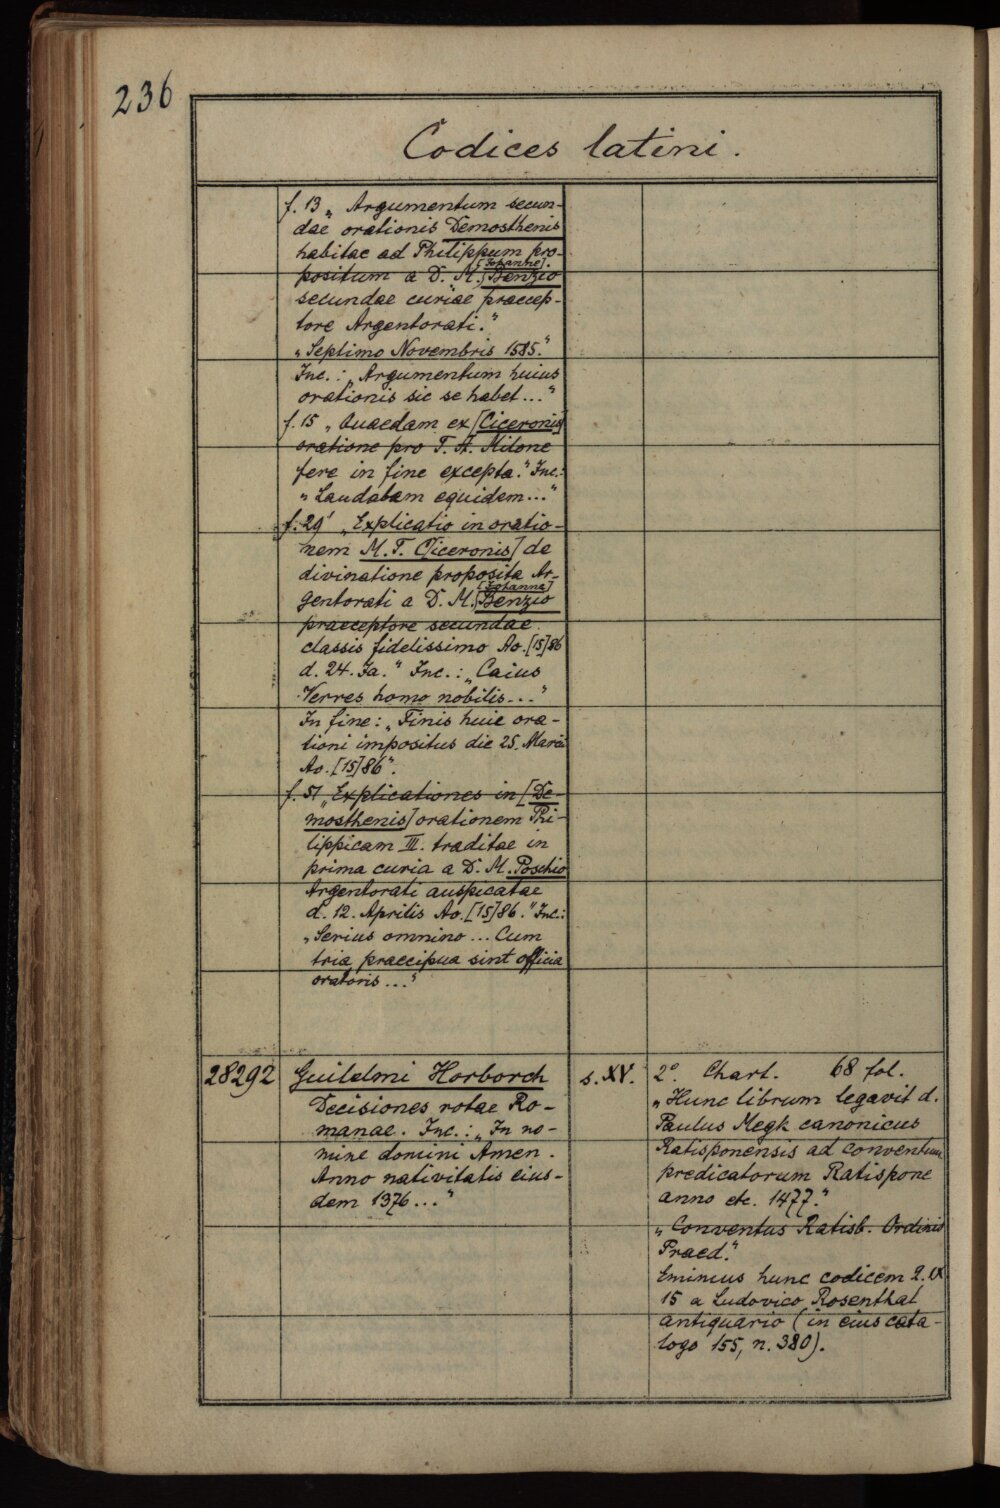 236
Codices latini.
f. 13 „Argumentum secun-
dae orationis Demosthenis
habitae ad Philippum pro-
positum a D. M. [Johanne] Benzio
secundae curiae praecep-
tore Argentorati.“
„Septimo Novembris 1585.“
Inc.: „Argumentum huius
orationis sic se habet...“
f. 15 „Quaedam ex [Ciceronis]
oratione pro T. A. Milone
fere in fine excepta.“ Inc.:
„Laudabam equidem...“
f. 29' „Explicatio in oratio-
nem M. T. C[iceronis] de
divinatione proposita Ar-
gentorati a D. M. [Johanne] Benzio
praeceptore secundae
classis fidelissimo Ao. [15]86
d. 24. Ja.“ Inc.: „Caius
Verres homo nobilis...“
In fine: „Finis huic ora-
tioni impositus die 25. Marci
Ao. [15]86“.
f. 51 „Explicationes in [De-
mosthenis] orationem Phi-
lippicam III. traditae in
prima curia a D. M. Poschio
Argentorati auspicatae
d. 12. Aprilis Ao. [15]86.“ Inc.:
„Serius omnino... Cum
tria praecipua sint officia
oratoris...“
28292 Guilelmi Horborch
Decisiones rotae Ro-
manae. Inc.: „In no-
mine domini Amen.
Anno nativitatis eius-
dem 1376...“
s. XV.
2°. Chart. 68 fol.
„Hunc librum legavit d.
Paulus Megk canonicus
Ratisponensis ad conventum
predicatorum Ratispone
anno etc. 1477.“
„Conventus Ratisb. Ordinis
Praed.“
Emimus hunc codicem 2. IX
15 a Ludovico Rosenthal
antiquario (in eius cata-
logo 155, n. 380).